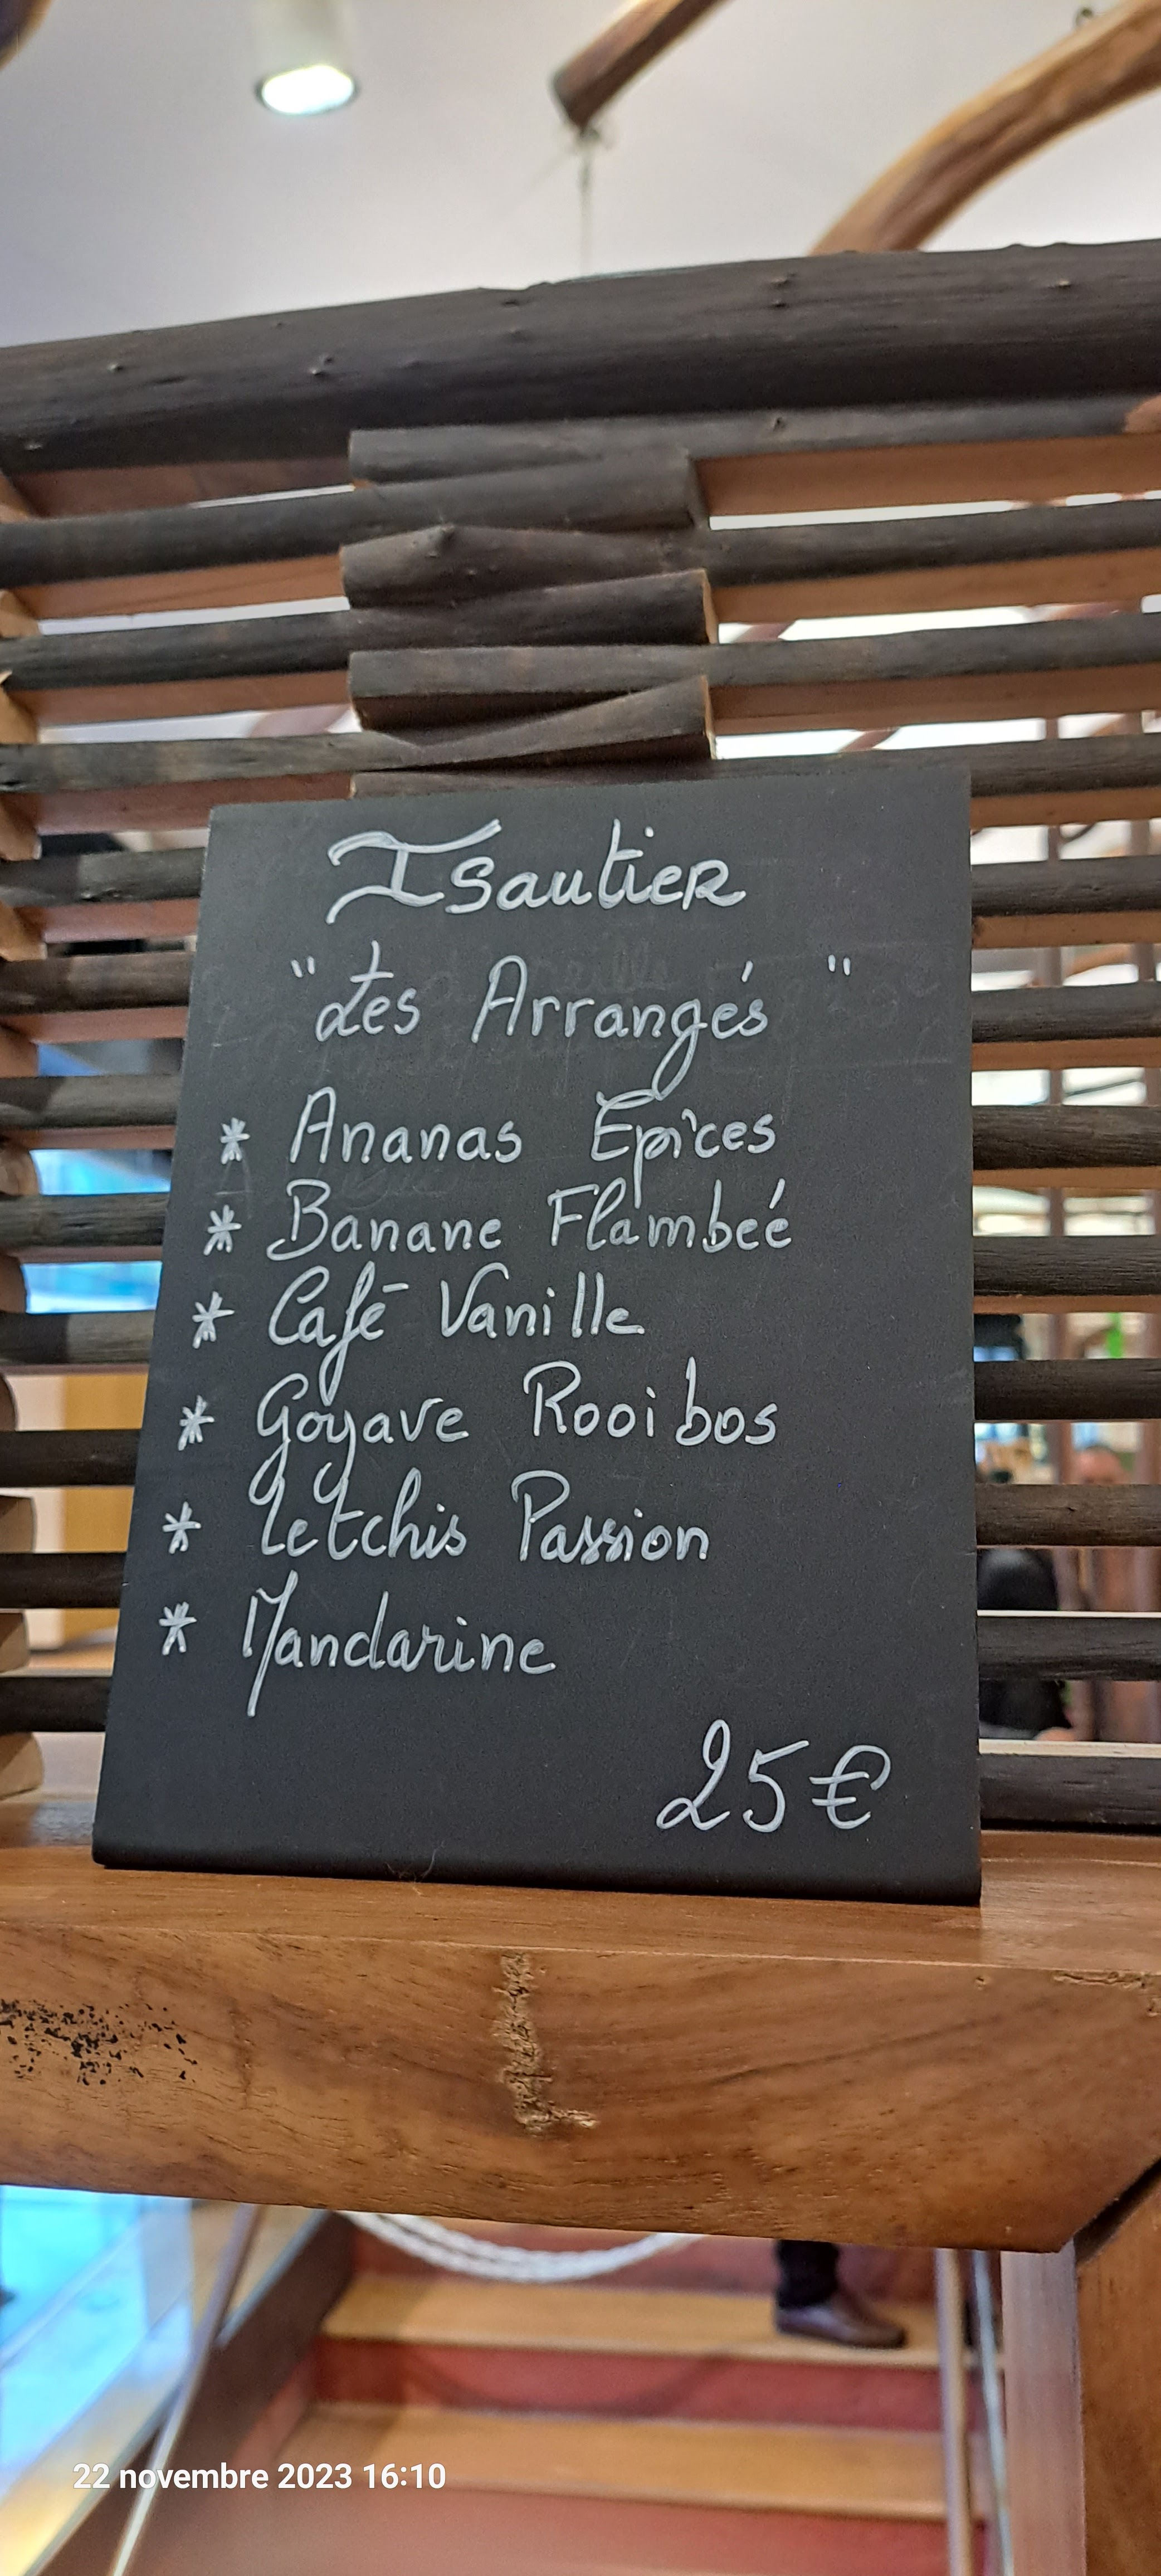 Isautier
"Les Arrangés"
* Ananas Epices
* Banane Flambeé
* Café Vanille
* Goyave Rooibos
* Letchis Passion
* Mandarine
25€
22 novembre 2023 16:10